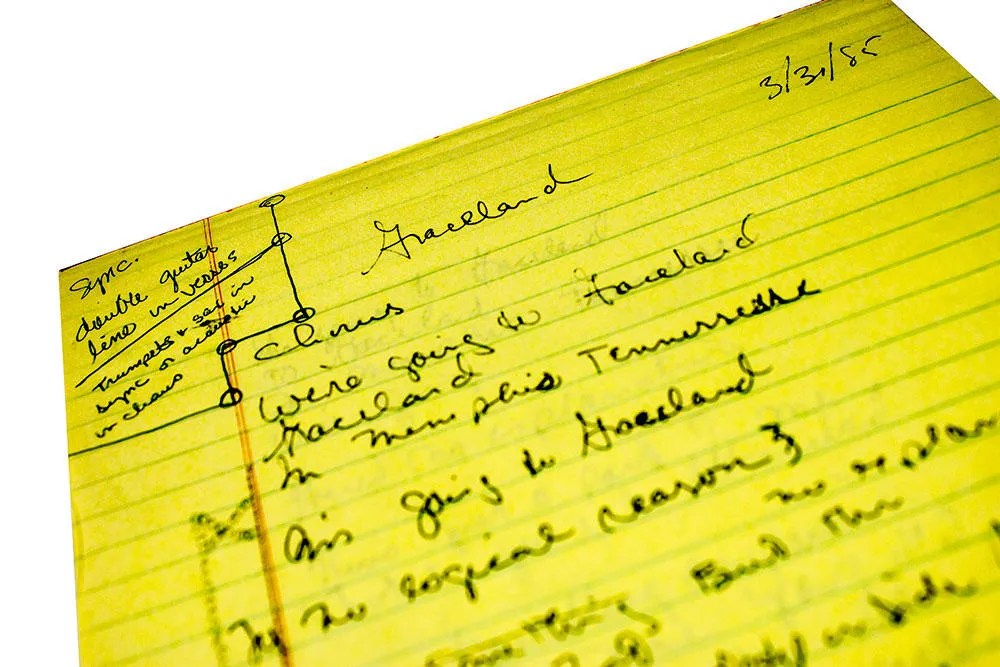 3/31/85
Graceland
Sync.
double guitar
line in verses
Trumpets & sax in
sync or acoustic
in chorus
Chorus
We're going to Graceland
Graceland
In Memphis Tennessee
going to Graceland
no logical reason }
no explan
But the
Something